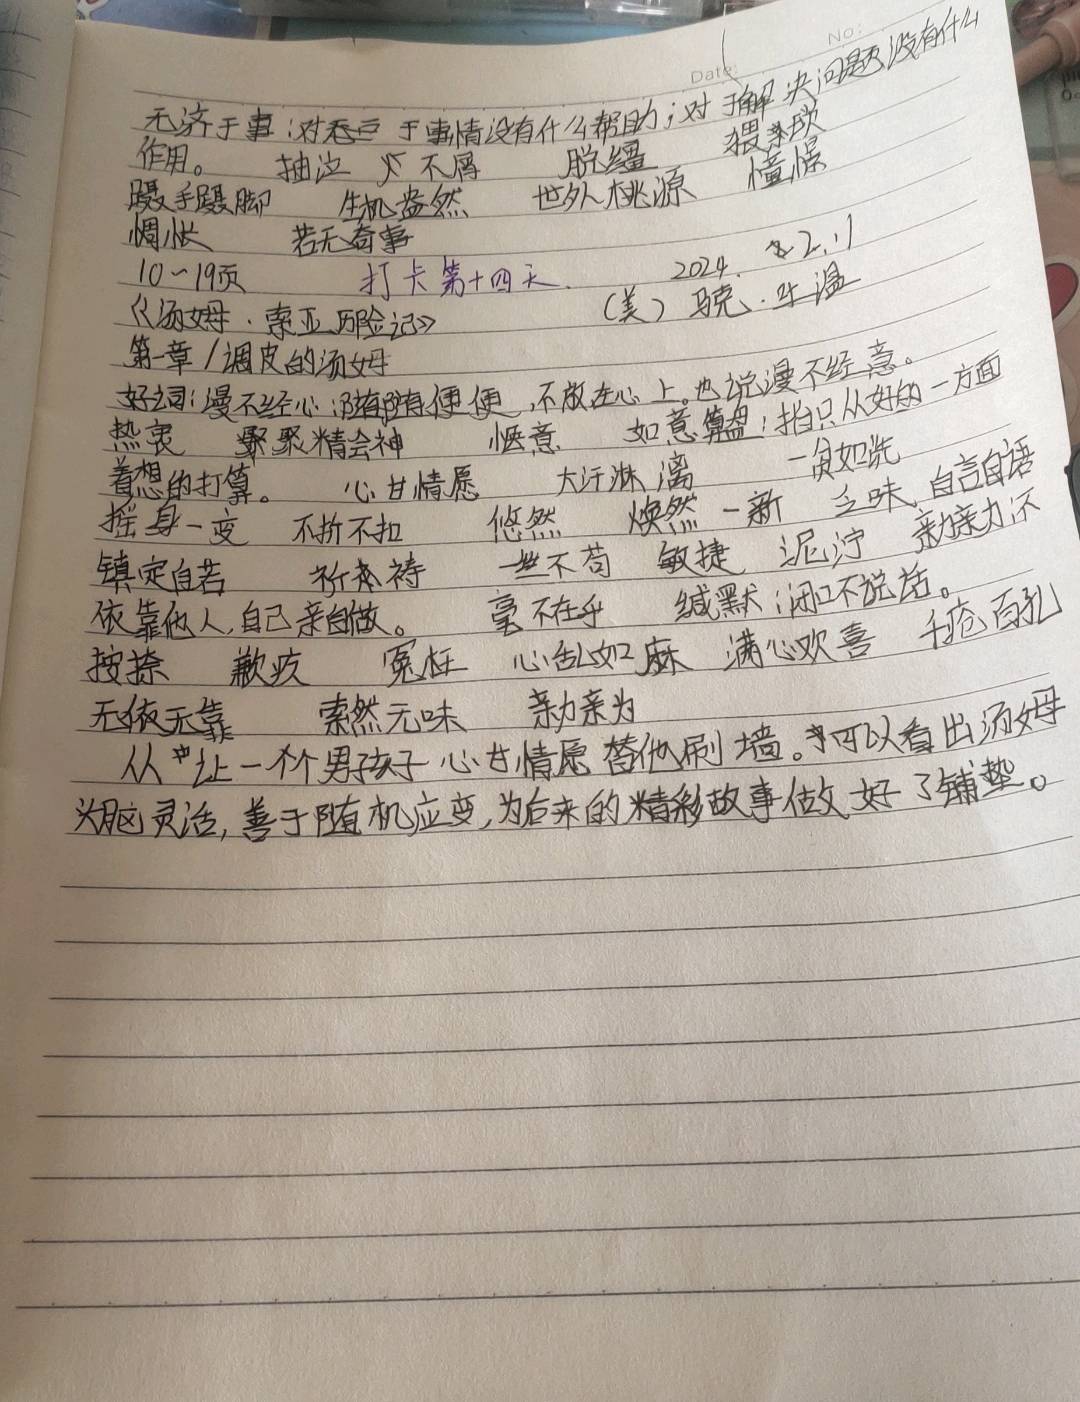 No:
Date:
无济于事:对于事情没有什么帮助;对于解决问题没有什么
作用。 抽泣 不屑 脱缰 猥琐
蹑手蹑脚 生机盎然 世外桃源 憧憬
惆怅 若无其事
10~19页 打卡第十四天. 2024. 2.11
《汤姆·索亚历险记》 (美)马克·吐温
第一章/调皮的汤姆
好词:漫不经心:随随便便,不放在心上。也说漫不经意。
热衷 聚精会神 惬意 如意算盘:指只从好的一方面
着想的打算。 心甘情愿 大汗淋漓 一贫如洗
摇身一变 不折不扣 悠然 焕然一新 乏味 自言自语
镇定自若 祈祷 一丝不苟 敏捷 泥泞 亲力亲力:不
依靠他人,自己亲自做。 毫不在乎 缄默:闭口不说话。
按捺 歉疚 冤枉 心乱如麻 满心欢喜 千疮百孔
无依无靠 索然无味 亲力亲为
从让一个个男孩子心甘情愿替他刷墙。可以看出汤姆
头脑灵活,善于随机应变,为后来的精彩故事做好了铺垫。